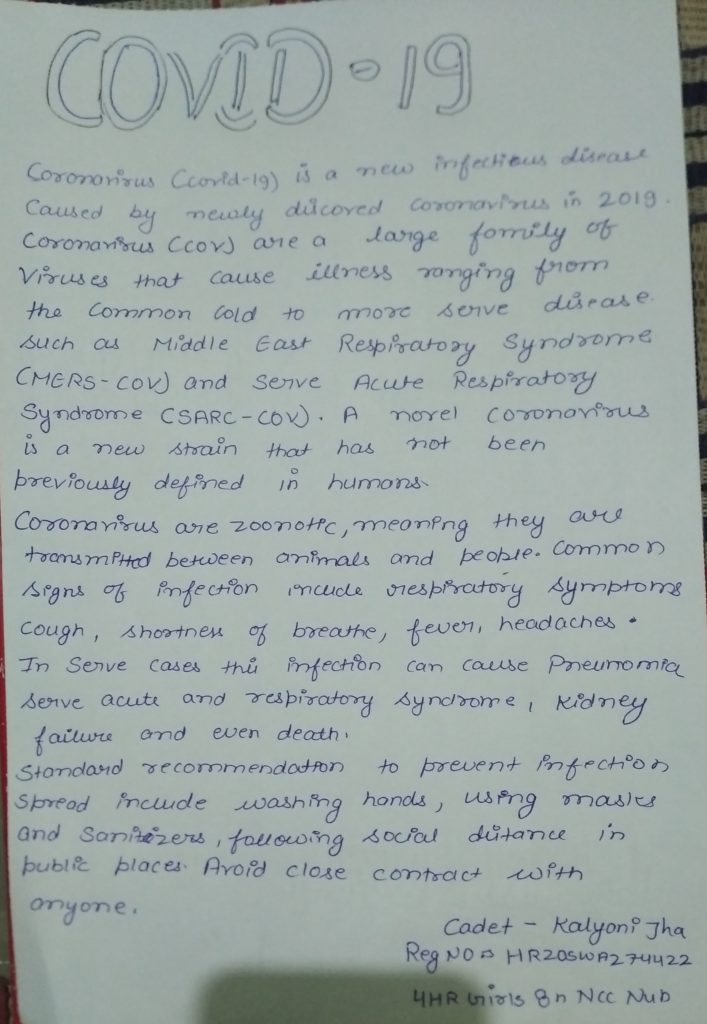 COVID-19
Coronavirus (covid-19) is a new infectious disease
Caused by newly discored coronavirus in 2019.
Coronavirus (cov) are a large family of
Viruses that cause illness ranging from
the common cold to more serve disease.
such as Middle East Respiratory Syndrome
(MERS-COV) and Serve Acute Respiratory
Syndrome (SARC-COV). A novel coronavirus
is a new strain that has not been
previously defined in humans.
Coronavirus are zoonotic, meaning they are
transmitted between animals and people. Common
signs of infection include respiratory symptoms
Cough, shortness of breathe, fever, headaches.
In Serve cases this infection can cause Pneunomia
serve acute and respiratory syndrome, kidney
failure and even death.
Standard recommendation to prevent infection
spread include washing hands, using masks
and Sanitizers, following social distance in
public places. Avoid close contract with
anyone.
Cadet - Kalyani Jha
Reg NO HR20SWA274422
4HR Girls Bn NCC Nub